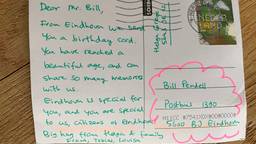 Dear Mr. Bill,
From Eindhoven we send
you a birthday card.
You have reached a
beautiful age, and can
share so many memories
with us.
Eindhoven is special for
you, and you are special
to us, citizens of Eindhoven
Big hug from Helga & family
Bill Pendell
Postbus 1380
5600 BJ Eindhoven